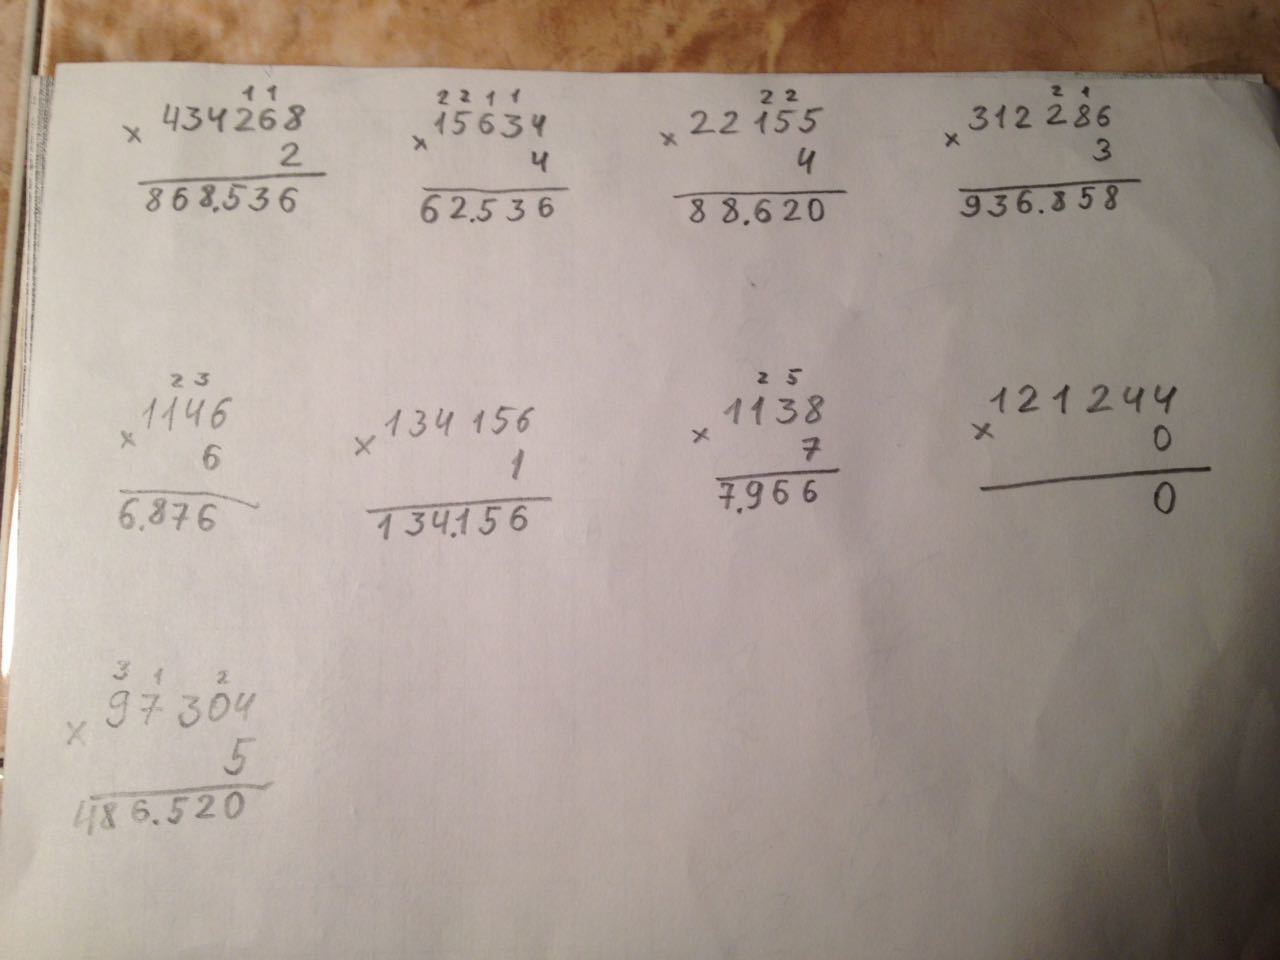 11
434268
× 2
868.536
2211
15634
× 4
62.536
22
22155
× 4
88.620
21
312286
× 3
936.858
23
1146
× 6
6.876
134156
× 1
134.156
25
1138
× 7
7.966
121244
× 0
0
31 2
97304
× 5
486.520